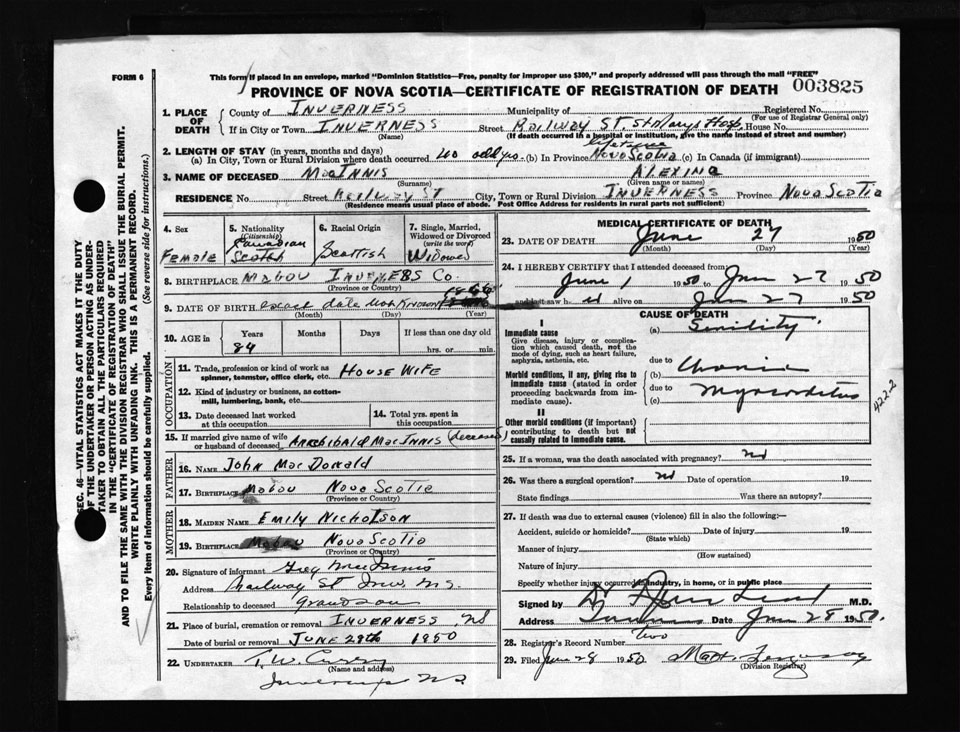 FORM 6
This form if placed in an envelope, marked "Dominion Statistics—Free, penalty for improper use $300," and properly addressed will pass through the mail "FREE"
PROVINCE OF NOVA SCOTIA—CERTIFICATE OF REGISTRATION OF DEATH 003825
1. PLACE OF DEATH County of INVERNESS Municipality of Registered No.
(For use of Registrar General only)
If in City or Town INVERNESS Street RAILWAY ST. St Marys Hosp. House No.
(Name) (If death occurred in a hospital or institution, give the name instead of street and number)
2. LENGTH OF STAY (in years, months and days) lifetime
(a) In City, Town or Rural Division where death occurred 40 odd yrs. (b) In Province NOVA SCOTIA (c) In Canada (if immigrant)
3. NAME OF DECEASED MacINNIS ALEXINA
(Surname) (Given name or names)
RESIDENCE No. Street Railway ST City, Town or Rural Division INVERNESS Province NOVA SCOTIA
(Residence means usual place of abode. Post Office Address for residents in rural parts not sufficient)
4. Sex
Female
5. Nationality (Citizenship)
Canadian
Scotch
6. Racial Origin
Scottish
7. Single, Married, Widowed or Divorced (write the word)
Widowed
8. BIRTHPLACE MABOU INVERNESS Co.
(Province or Country)
9. DATE OF BIRTH exact date not known 1866
(Month) (Day) (Year)
10. AGE if Years Months Days If less than one day old
84 hrs. or min.
OCCUPATION
11. Trade, profession or kind of work as spinner, teamster, office clerk, etc. HOUSE WIFE
12. Kind of industry or business, as cotton-mill, lumbering, bank, etc.
13. Date deceased last worked at this occupation
14. Total yrs. spent in this occupation
15. If married give name of wife or husband of deceased ARCHIBALD MacINNIS (deceased)
FATHER
16. NAME John MacDonald
17. BIRTHPLACE Mabou Nova Scotia
(Province or Country)
MOTHER
18. MAIDEN NAME Emily Nicholson
19. BIRTHPLACE Mabou Nova Scotia
(Province or Country)
20. Signature of informant Greg MacInnis
Address Railway St Inv. N.S.
Relationship to deceased grandson
21. Place of burial, cremation or removal INVERNESS, NS
Date of burial or removal JUNE 29th 1950
22. UNDERTAKER T. W. Curry
(Name and address)
Inverness N.S.
MEDICAL CERTIFICATE OF DEATH
23. DATE OF DEATH June 27 1950
(Month) (Day) (Year)
24. I HEREBY CERTIFY that I attended deceased from:
June 1 1950 to June 27 1950
and last saw h alive on June 27 1950
CAUSE OF DEATH
I
Immediate cause
Give disease, injury or complication which caused death, not the mode of dying, such as heart failure, asphyxia, asthenia, etc.
(a) Senility
due to
Morbid conditions, if any, giving rise to immediate cause (stated in order proceeding backwards from immediate cause).
(b) Chronic
due to
(c) Myocarditis
422.2
II
Other morbid conditions (if important) contributing to death but not causally related to immediate cause.
25. If a woman, was the death associated with pregnancy? no
26. Was there a surgical operation? no Date of operation 19
State findings Was there an autopsy?
27. If death was due to external causes (violence) fill in also the following:—
Accident, suicide or homicide? Date of injury 19
(State which)
Manner of injury
(How sustained)
Nature of injury
Specify whether injury occurred in industry, in home, or in public place
Signed by Dr M.D.
Address Inverness Date June 28 1950.
28. Registrar's Record Number two
29. Filed June 28 1950 Ferguson
(Division Registrar)
SEC. 46—VITAL STATISTICS ACT MAKES IT THE DUTY OF THE UNDERTAKER OR PERSON ACTING AS UNDERTAKER TO OBTAIN ALL THE PARTICULARS REQUIRED IN THE "CERTIFICATE OF REGISTRATION OF DEATH" AND TO FILE THE SAME WITH THE DIVISION REGISTRAR WHO SHALL ISSUE THE BURIAL PERMIT.
WRITE PLAINLY WITH UNFADING INK. THIS IS A PERMANENT RECORD.
Every item of information should be carefully supplied. (See reverse side for instructions.)